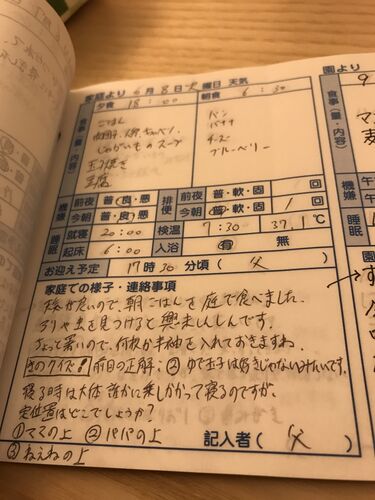 家庭より 6月 8日 火 曜日 天気
夕食 18:00 朝食 6:30
食事（量・内容）
ごはん
じゃがいものスープ
玉子焼き
豆腐
パン
バナナ
チーズ
ブルーベリー
機嫌 前夜 普・良・悪 排便 前夜 普・軟・固 回
今朝 普・良・悪 今朝 普・軟・固 1回
睡眠 就寝 20:00 検温 7:30 37.1℃
起床 6:00 入浴 有 無
お迎え予定 17時30分頃（父）
家庭での様子・連絡事項
天気が良いので、朝ごはんを庭で食べました。
アリや虫を見つけると興味しんしんです。
ちょっと暑いので、何枚か半袖を入れておきますね。
前日の正解：② ゆで玉子は好きじゃないみたいです。
寝る時は大体誰かに乗しかかって寝るのですが、
定位置はどこでしょうか？
①ママの上 ②パパの上 記入者（父）
③ねえねの上
園より
9
食事（量・内容）
機嫌
睡眠